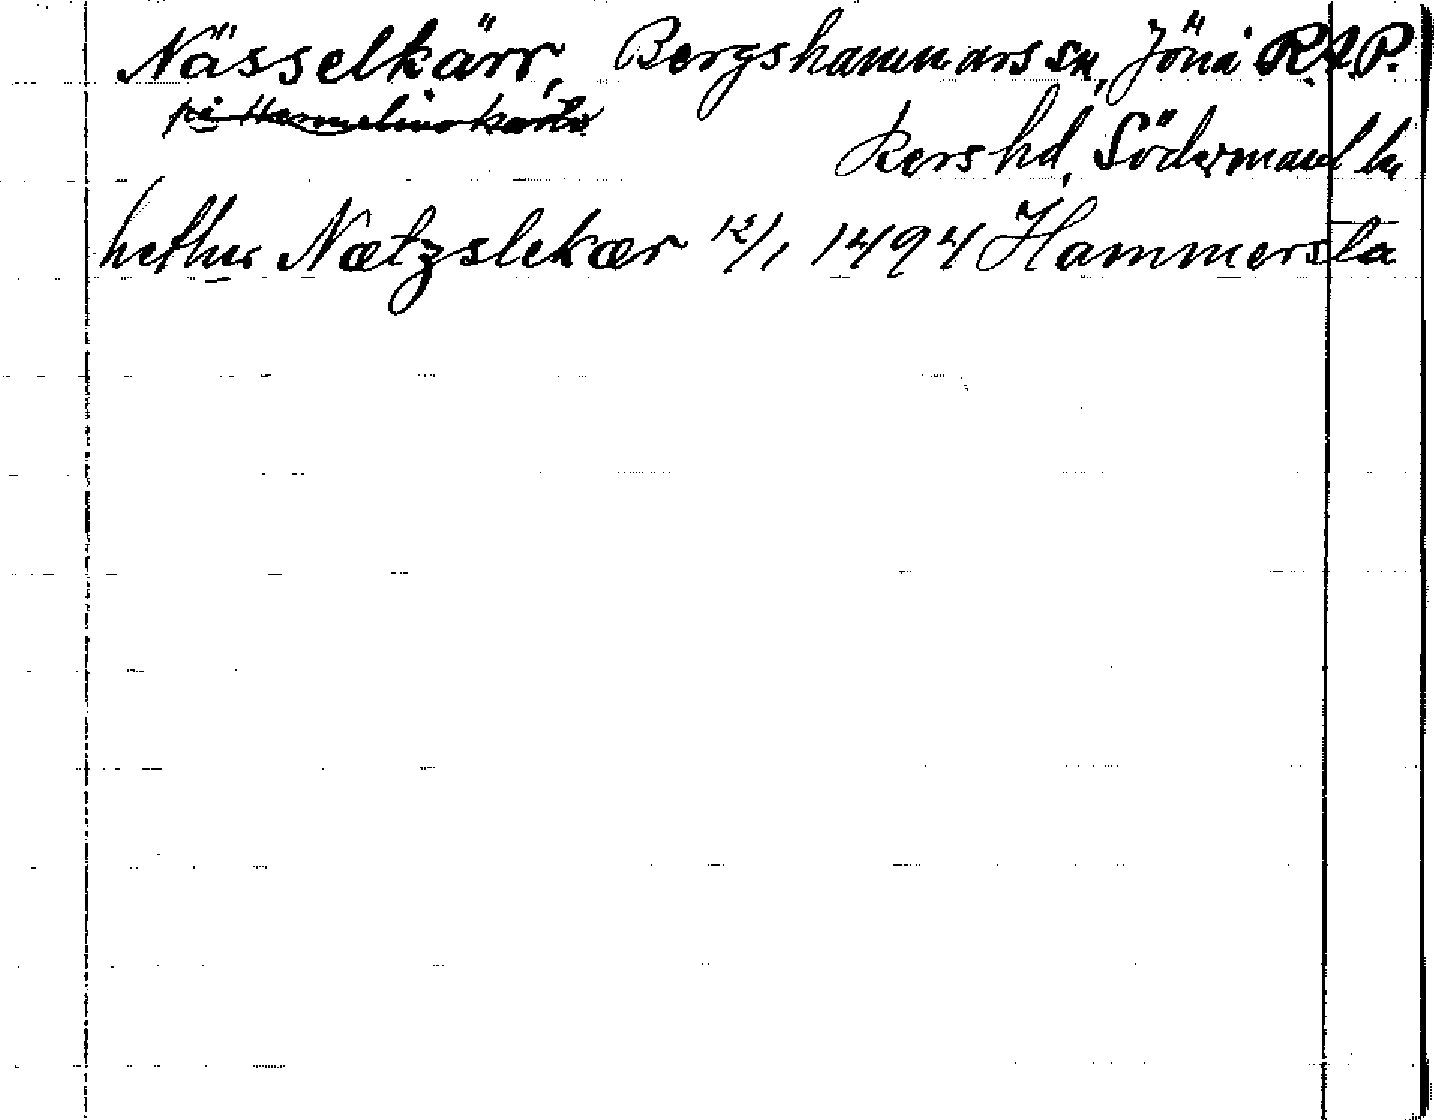 Nässelkärr, Bergshammars sn, Jönå R.A.P.
på Hermelins karta
kers hd, Södermanl ln
hether Nætzslekær 12/1 1494 Hammersta